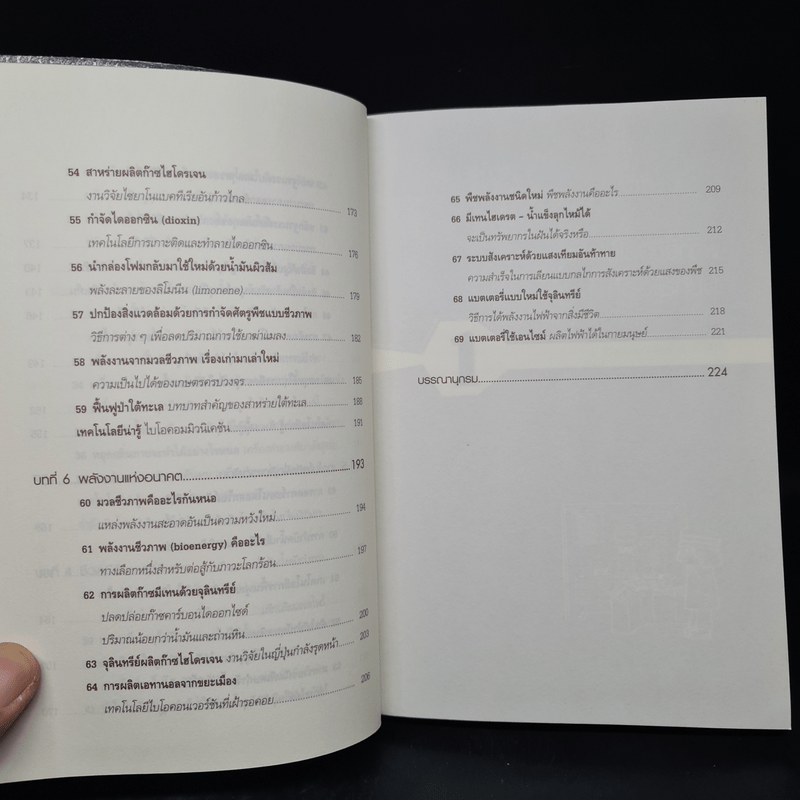 54 สาหร่ายผลิตก๊าซไฮโดรเจน
งานวิจัยไซยาโนแบคทีเรียอันก้าวไกล 173
55 กำจัดไดออกซิน (dioxin)
เทคโนโลยีการเกาะติดและทำลายไดออกซิน 176
56 นำกล่องโฟมกลับมาใช้ใหม่ด้วยน้ำมันผิวส้ม
พลังละลายของลิโมนีน (limonene) 179
57 ปกป้องสิ่งแวดล้อมด้วยการกำจัดศัตรูพืชแบบชีวภาพ
วิธีการต่าง ๆ เพื่อลดปริมาณการใช้ยาฆ่าแมลง 182
58 พลังงานจากมวลชีวภาพ เรื่องเก่ามาเล่าใหม่
ความเป็นไปได้ของเกษตรครบวงจร 185
59 ฟื้นฟูป่าใต้ทะเล บทบาทสำคัญของสาหร่ายใต้ทะเล 188
เทคโนโลยีน่ารู้ ไบโอคอมมิวนิเคชัน 191
บทที่ 6 พลังงานแห่งอนาคต 193
60 มวลชีวภาพคืออะไรกันหนอ
แหล่งพลังงานสะอาดอันเป็นความหวังใหม่ 194
61 พลังงานชีวภาพ (bioenergy) คืออะไร
ทางเลือกหนึ่งสำหรับต่อสู้กับภาวะโลกร้อน 197
62 การผลิตก๊าซมีเทนด้วยจุลินทรีย์
ปลดปล่อยก๊าซคาร์บอนไดออกไซด์
ปริมาณน้อยกว่าน้ำมันและถ่านหิน 200
63 จุลินทรีย์ผลิตก๊าซไฮโดรเจน งานวิจัยในญี่ปุ่นกำลังรุดหน้า 203
64 การผลิตเอทานอลจากขยะเมือง
เทคโนโลยีไบโอคอนเวอร์ชันที่เฝ้ารอคอย 206
65 พืชพลังงานชนิดใหม่ พืชพลังงานคืออะไร 209
66 มีเทนไฮเดรต - น้ำแข็งลุกไหม้ได้
จะเป็นทรัพยากรในฝันได้จริงหรือ 212
67 ระบบสังเคราะห์ด้วยแสงเทียมอันท้าทาย
ความสำเร็จในการเลียนแบบกลไกการสังเคราะห์ด้วยแสงของพืช 215
68 แบตเตอรี่แบบใหม่ใช้จุลินทรีย์
วิธีการได้พลังงานไฟฟ้าจากสิ่งมีชีวิต 218
69 แบตเตอรี่ใช้เอนไซม์ ผลิตไฟฟ้าได้ในกายมนุษย์ 221
บรรณานุกรม 224